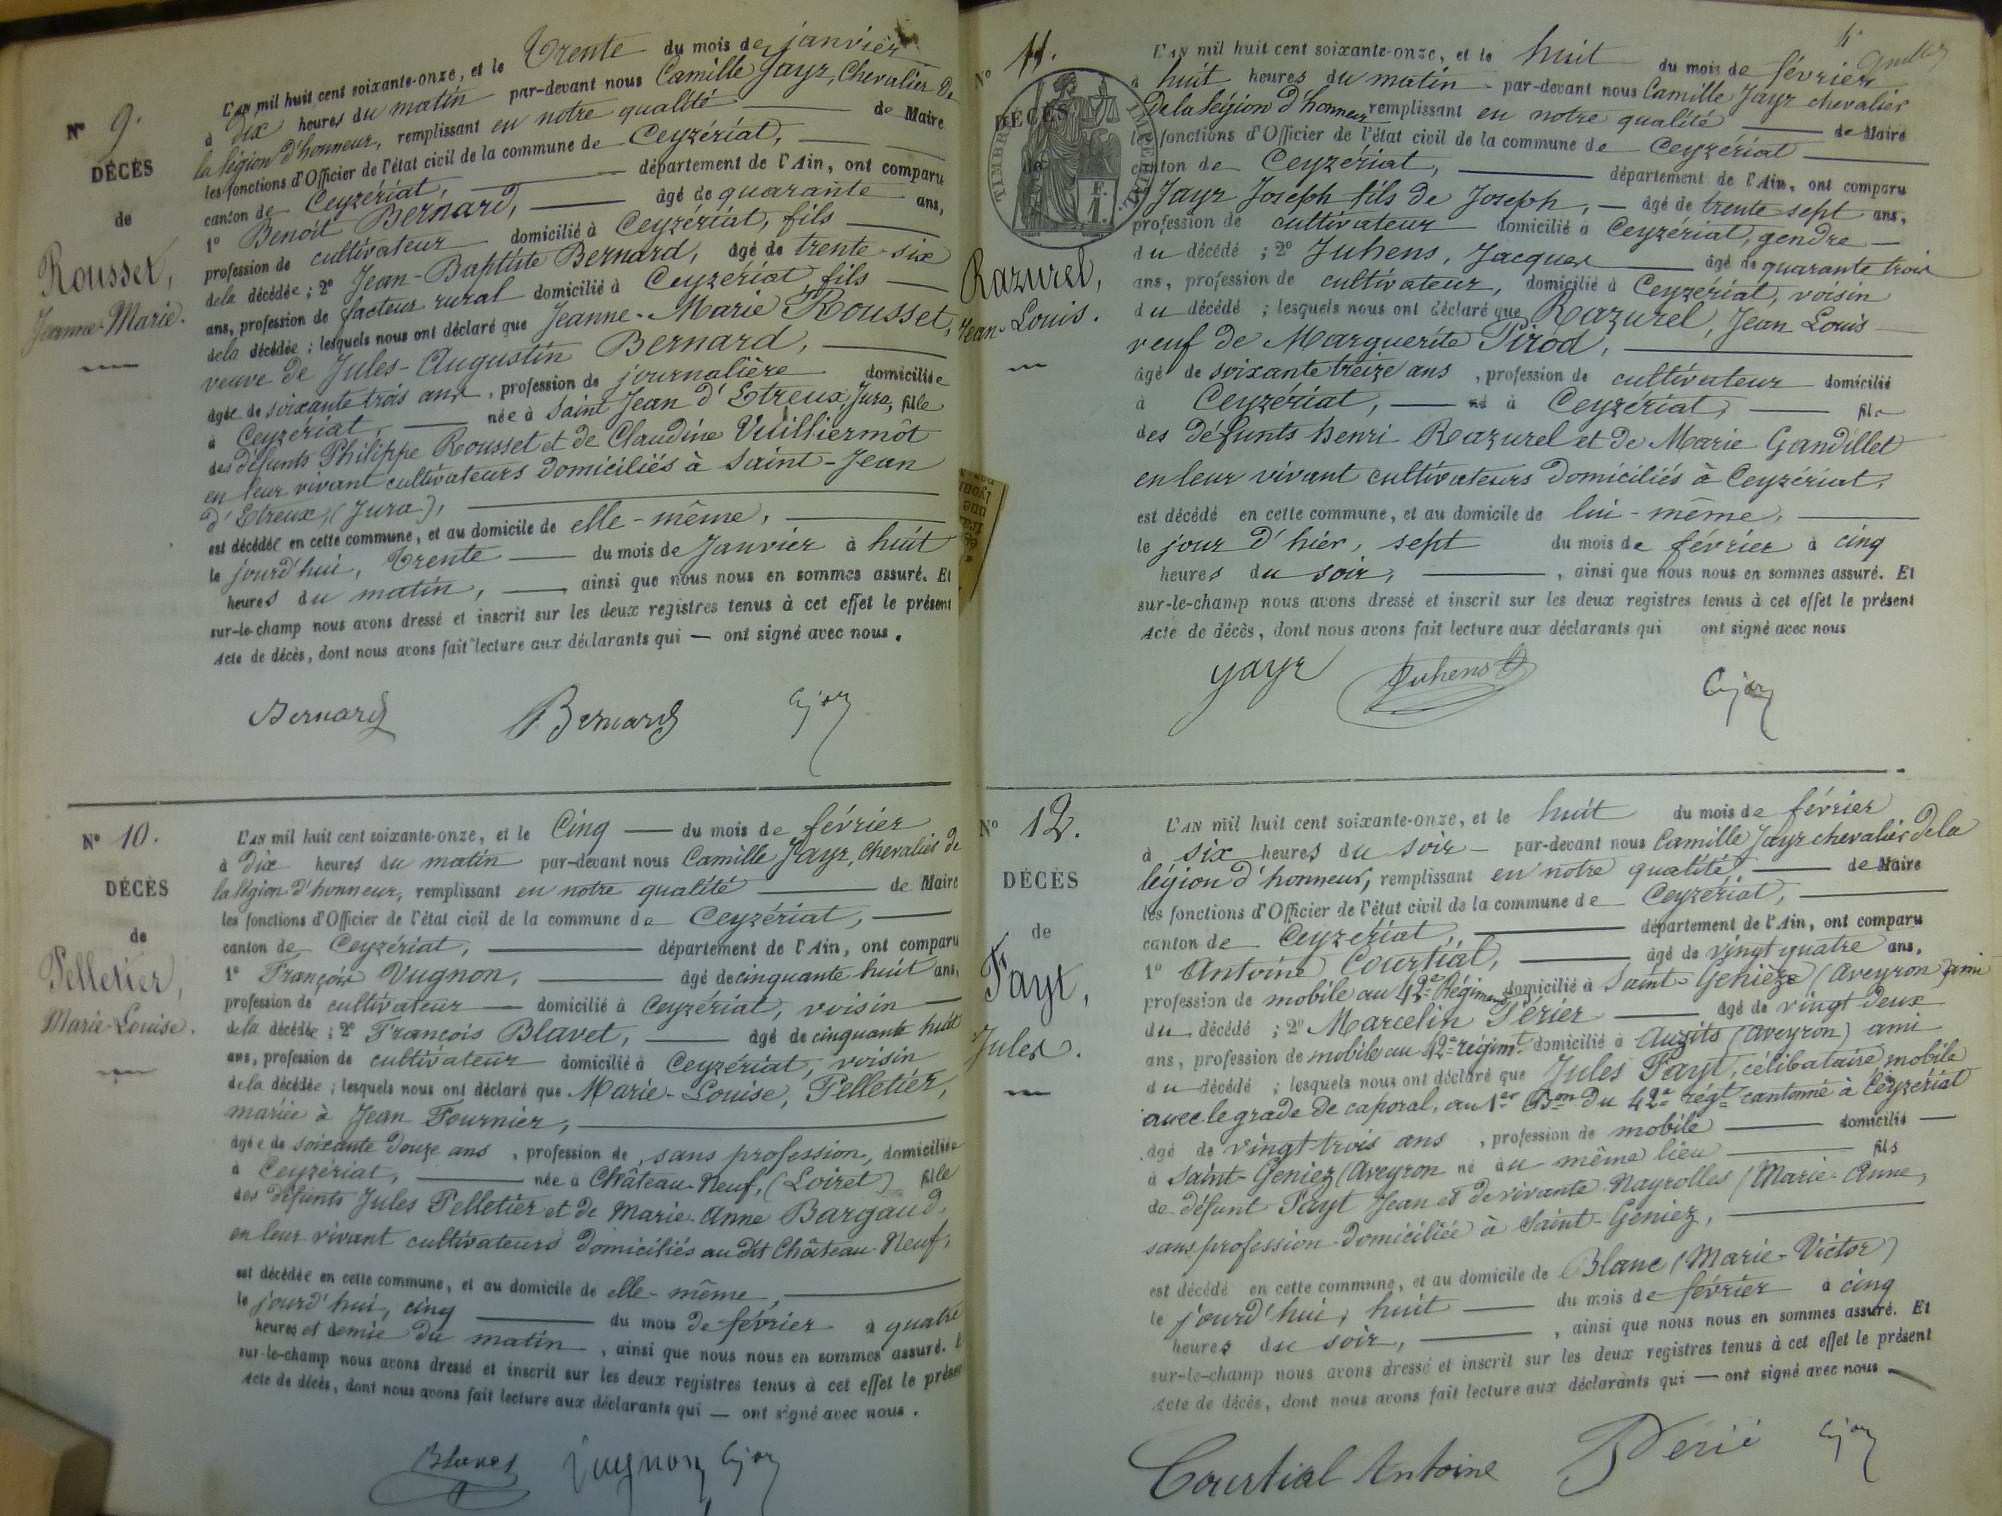 N° 9.
DÉCÈS
de
Rousset,
Jeanne-Marie.
L'AN mil huit cent soixante-onze, et le Trente du mois de janvier
à dix heures du matin par-devant nous Camille Jayr, Chevalier de
la légion d'honneur, remplissant en notre qualité de Maire
les fonctions d'Officier de l'état civil de la commune de Ceyzériat,
canton de Ceyzériat, département de l'Ain, ont comparu
1° Benoit Bernard, âgé de quarante ans,
profession de cultivateur domicilié à Ceyzériat, fils
de la décédée ; 2° Jean-Baptiste Bernard, âgé de trente-six
ans, profession de facteur rural domicilié à Ceyzériat fils
de la décédée ; lesquels nous ont déclaré que Jeanne-Marie Rousset,
veuve de Jules-Augustin Bernard,
âgée de soixante trois ans, profession de journalière domiciliée
à Ceyzériat, née à Saint Jean d'Etreux, Jura, fille
des défunts Philippe Rousset et de Claudine Vuilliermôt
en leur vivant cultivateurs domiciliés à Saint-Jean
d'Etreux, (Jura),
est décédée en cette commune, et au domicile de elle-même,
le jourd'hui, Trente du mois de Janvier à huit
heures du matin, ainsi que nous nous en sommes assuré. Et
sur-le-champ nous avons dressé et inscrit sur les deux registres tenus à cet effet le présent
Acte de décès, dont nous avons fait lecture aux déclarants qui — ont signé avec nous.
Bernard Bernard
N° 10.
DÉCÈS
de
Pelletier,
Marie-Louise.
L'AN mil huit cent soixante-onze, et le Cinq du mois de février
à dix heures du matin par-devant nous Camille Jayr, Chevalier de
la légion d'honneur, remplissant en notre qualité de Maire
les fonctions d'Officier de l'état civil de la commune de Ceyzériat,
canton de Ceyzériat, département de l'Ain, ont comparu
1° François Vugnon, âgé de cinquante huit ans,
profession de cultivateur domicilié à Ceyzériat, voisin
de la décédée ; 2° François Blavet, âgé de cinquante huit
ans, profession de cultivateur domicilié à Ceyzériat, voisin
de la décédée ; lesquels nous ont déclaré que Marie-Louise, Pelletier,
mariée à Jean Fournier,
âgée de soixante douze ans, profession de sans profession, domiciliée
à Ceyzériat, née à Château-Neuf, (Loiret) fille
des défunts Jules Pelletier et de Marie-Anne Bargaud,
en leur vivant cultivateurs domiciliés au dit Château-Neuf,
est décédée en cette commune, et au domicile de elle-même,
le jourd'hui, cinq du mois de février à quatre
heures et demie du matin, ainsi que nous nous en sommes assuré. E
sur-le-champ nous avons dressé et inscrit sur les deux registres tenus à cet effet le présen
Acte de décès, dont nous avons fait lecture aux déclarants qui — ont signé avec nous.
Blavet Vugnon
N° 11.
DÉCÈS
de
TIMBRE IMPÉRIAL
Razurel,
Jean-Louis.
L'AN mil huit cent soixante-onze, et le huit du mois de février
à huit heures du matin par-devant nous Camille Jayr chevalier
de la légion d'honneur remplissant en notre qualité de Maire
les fonctions d'Officier de l'état civil de la commune de Ceyzériat
canton de Ceyzériat, département de l'Ain, ont comparu
Jayr Joseph fils de Joseph, âgé de trente sept ans,
profession de cultivateur domicilié à Ceyzériat, gendre
du décédé ; 2° Juhens, Jacques âgé de quarante trois
ans, profession de cultivateur, domicilié à Ceyzériat, voisin
du décédé ; lesquels nous ont déclaré que Razurel, Jean Louis
veuf de Marguerite Pirod,
âgé de soixante treize ans, profession de cultivateur domicilié
à Ceyzériat, né à Ceyzériat, fils
des défunts henri Razurel et de Marie Gandillet
en leur vivant cultivateurs domiciliés à Ceyzériat,
est décédé en cette commune, et au domicile de lui-même,
le jour d'hier, sept du mois de février à cinq
heures du soir, ainsi que nous nous en sommes assuré. Et
sur-le-champ nous avons dressé et inscrit sur les deux registres tenus à cet effet le présent
Acte de décès, dont nous avons fait lecture aux déclarants qui ont signé avec nous
Jayr Juhens
N° 12.
DÉCÈS
de
Fayt,
Jules.
L'AN mil huit cent soixante-onze, et le huit du mois de février
à six heures du soir par-devant nous Camille Jayr chevalier de la
légion d'honneur, remplissant en notre qualité, de Maire
les fonctions d'Officier de l'état civil de la commune de Ceyzériat,
canton de Ceyzériat, département de l'Ain, ont comparu
1° Antoine Courtial, âgé de vingt quatre ans,
profession de mobile au 42e Régiment domicilié à Saint-Genièze (Aveyron) ami
du décédé ; 2° Marcelin Périer âgé de vingt deux
ans, profession de mobile au 42e régimt domicilié à Auzits (Aveyron) ami
du décédé ; lesquels nous ont déclaré que Jules Fayt, célibataire, mobile
avec le grade de caporal, au 1er Bon du 42e régt cantonné à Ceyzériat
âgé de vingt trois ans, profession de mobile domicilié
à Saint-Geniez (Aveyron né au même lieu fils
de défunt Fayt Jean et de vivante Nayrolles (Marie-Anne,
sans profession domiciliée à Saint-Geniez,
est décédé en cette commune, et au domicile de Blanc (Marie-Victor)
le jourd'hui, huit du mois de février à cinq
heures du soir, ainsi que nous nous en sommes assuré. Et
sur-le-champ nous avons dressé et inscrit sur les deux registres tenus à cet effet le présent
Acte de décès, dont nous avons fait lecture aux déclarants qui — ont signé avec nous
Courtial Antoine Périé